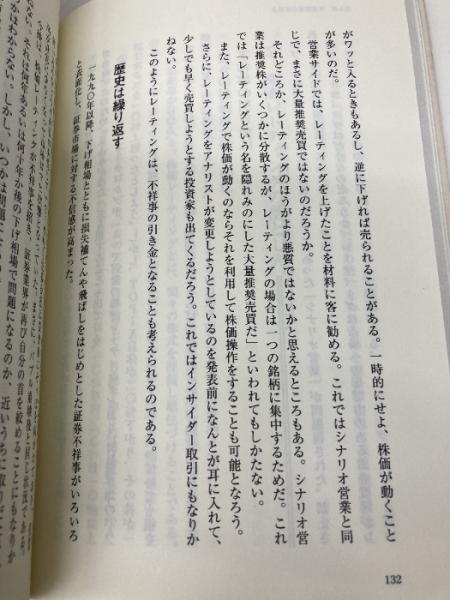 がワッと入るときもあるし、逆に下げれば売られることがある。一時的にせよ、株価が動くこと
が多いのだ。
営業サイドでは、レーティングを上げたことを材料に客に勧める。これではシナリオ営業と同
じで、まさに大量推奨売買ではないのだろうか。
それどころか、レーティングのほうがより悪質ではないかと思えるところもある。シナリオ営
業は推奨株がいくつかに分散するが、レーティングの場合は一つの銘柄に集中するためだ。これ
では「レーティングという名を隠れみのにした大量推奨売買だ」といわれてもしかたない。
また、レーティングで株価が動くのならそれを利用して株価操作をすることも可能となろう。
さらに、レーティングをアナリストが変更しようとしているのを発表前になんとか耳に入れて、
少しでも早く売買しようとする投資家も出てくるだろう。これではインサイダー取引にもなりか
ねない。
このようにレーティングは、不祥事の引き金となることも考えられるのである。
歴史は繰り返す
一九九〇年以降、下げ相場とともに損失補てんや飛ばしをはじめとした証券不祥事がいろいろ
と表面化し、証券市場に対する不信感が高まった。
132